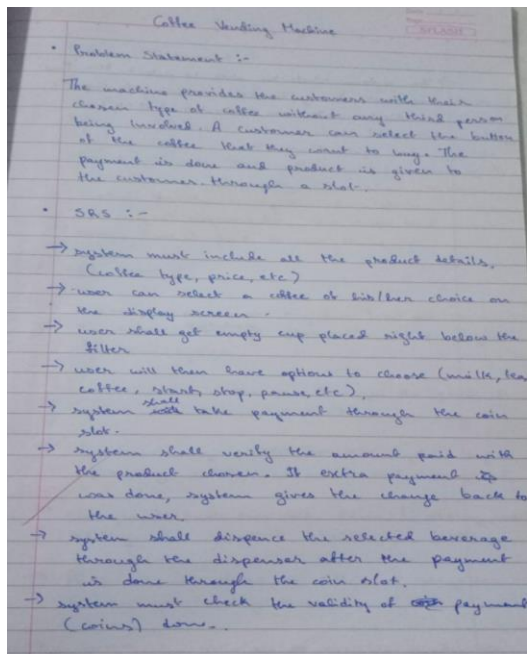 Coffee Vending Machine
• Problem Statement :-
The machine provides the customers with their
chosen type of coffee without any third person
being involved. A customer can select the button
of the coffee that they want to buy. The
payment is done and product is given to
the customer through a slot.
• SRS :-
→ system must include all the product details,
(coffee type, price, etc)
→ user can select a coffee of his/her choice on
the display screen.
→ user shall get empty cup placed right below the
filter
→ user will then have options to choose (milk, tea,
coffee, start, stop, pause, etc),
→ system shall take payment through the coin
slot.
→ system shall verify the amount paid with
the product chosen. If extra payment
was done, system gives the change back to
the user.
→ system shall dispence the selected beverage
through the dispensor after the payment
is done through the coin slot.
→ system must check the validity of payment
(coins) done..